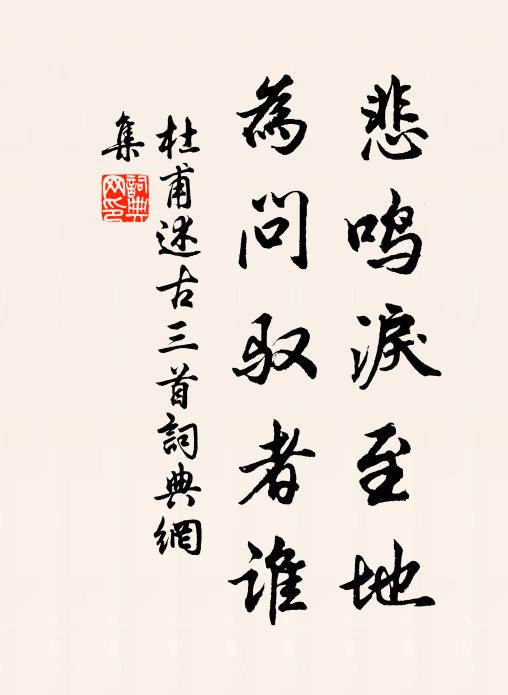 悲鸣淚至地
為问驭者谁
杜甫述古三首詞典網
集
詞典
网印